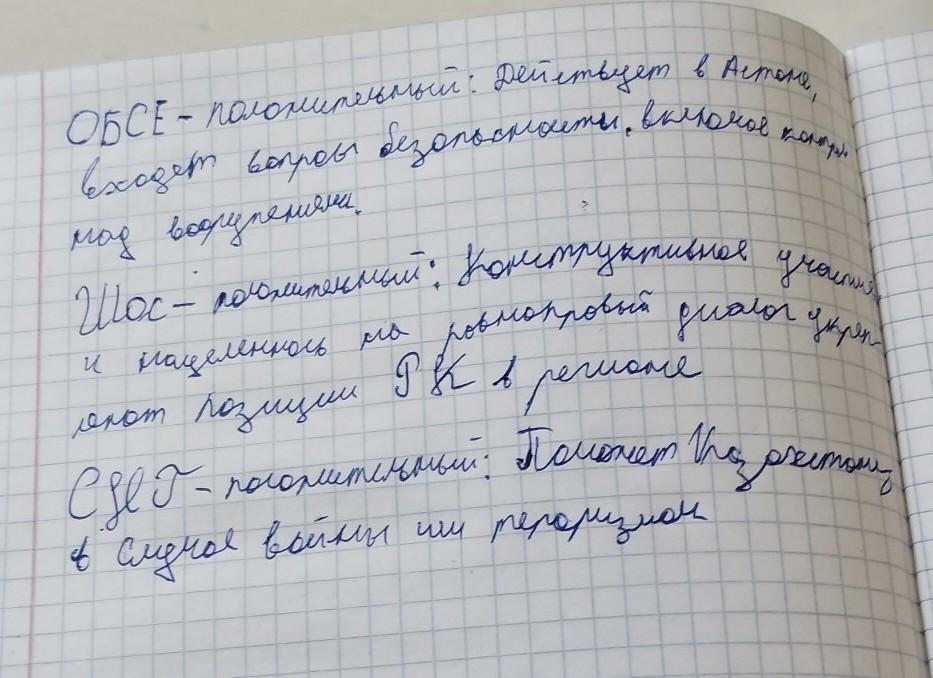 ОБСЕ - положительный: Действует в Астане,
входят вопросы безопасности, включая контроль
над вооружениями.
Шос - положительный: Конструктивное участия
и нацеленность на равноправый диалог укреп-
ляют позиции РК в регионе
- положительный: Поможет Казахстану
в случае войны или тероризмом